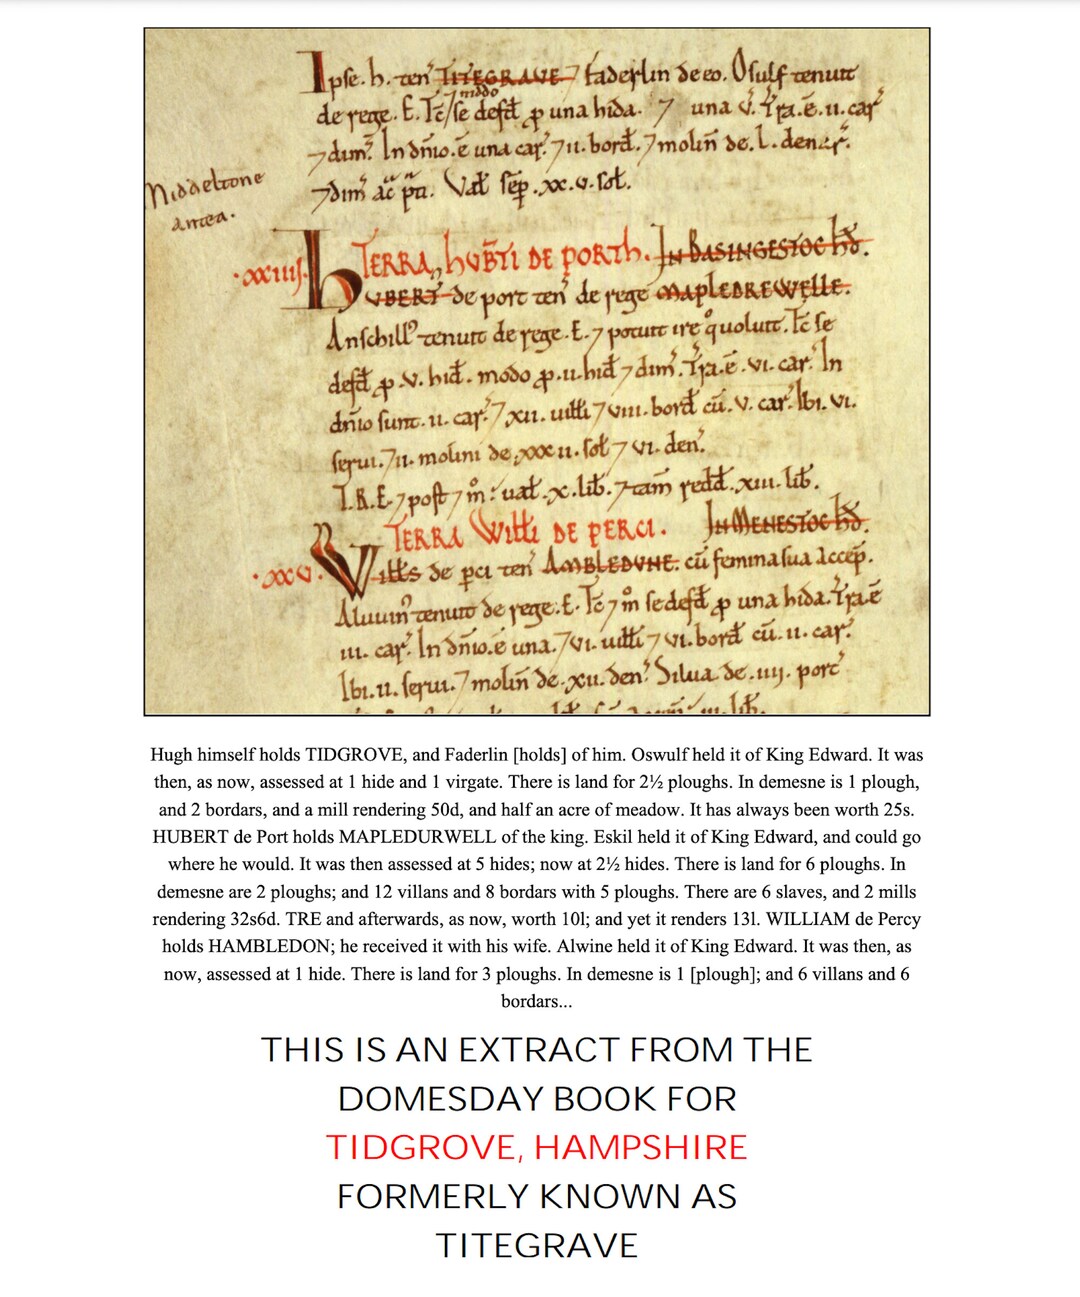 Ipse .h. ten̄ TITEGRAVE. ⁊ faderlin de eo. Osulf tenuit
de rege .E. Tc̄ ⁊ modo se defd̄ ꝑ una hida. ⁊ una v̄. Tr̄a .ē. ii. car̄
⁊ dim̄. In dn̄io .ē una car̄. ⁊ ii. bord̄. ⁊ molin̄ de .l. denar̄.
⁊ dim̄ ac̄ p̄ti. Val̄ sēp .xx.v. sol̄.
Niddeltone
.xxiiij. TERRA HUB̄TI DE PORTH. IN BASINGESTOC HD̄.
HUBERT de port ten̄ de rege MAPLEDREWELLE.
Anschill' tenuit de rege .E. ⁊ potuit ire quo uoluit. Tc̄ se
defd̄ ꝑ .v. hid̄. modo ꝑ .ii. hid̄ ⁊ dim̄. Tr̄a .ē. vi. car̄. In
dn̄io sunt .ii. car̄. ⁊ xii. uill̄i ⁊ viii. bord̄ cū .v. car̄. Ibi .vi.
serui. ⁊ ii. molini de xxxii. sol̄ ⁊ vi. den̄.
T.R.E. ⁊ post ⁊ m̊. ual̄ .x. lib̄. ⁊ tam̄ redd̄ .xiii. lib̄.
TERRA WILL̄I DE PERCI. IN MENESTOC HD̄.
.xxv. Will̄s de p̄ci ten̄ AMBLEDUNE. cū femina sua accep̄.
Aluuin̄ tenuit de rege .E. Tc̄ ⁊ m̊ se defd̄ ꝑ una hida. Tr̄a ē
iii. car̄. In dn̄io .ē una. ⁊ vi. uill̄i ⁊ vi. bord̄ cū .ii. car̄.
Ibi .ii. serui. ⁊ molin̄ de .xii. den̄. Silua de .iiij. porc̄
Hugh himself holds TIDGROVE, and Faderlin [holds] of him. Oswulf held it of King Edward. It was
then, as now, assessed at 1 hide and 1 virgate. There is land for 2½ ploughs. In demesne is 1 plough,
and 2 bordars, and a mill rendering 50d, and half an acre of meadow. It has always been worth 25s.
HUBERT de Port holds MAPLEDURWELL of the king. Eskil held it of King Edward, and could go
where he would. It was then assessed at 5 hides; now at 2½ hides. There is land for 6 ploughs. In
demesne are 2 ploughs; and 12 villans and 8 bordars with 5 ploughs. There are 6 slaves, and 2 mills
rendering 32s6d. TRE and afterwards, as now, worth 10l; and yet it renders 13l. WILLIAM de Percy
holds HAMBLEDON; he received it with his wife. Alwine held it of King Edward. It was then, as
now, assessed at 1 hide. There is land for 3 ploughs. In demesne is 1 [plough]; and 6 villans and 6
bordars...
THIS IS AN EXTRACT FROM THE
DOMESDAY BOOK FOR
TIDGROVE, HAMPSHIRE
FORMERLY KNOWN AS
TITEGRAVE